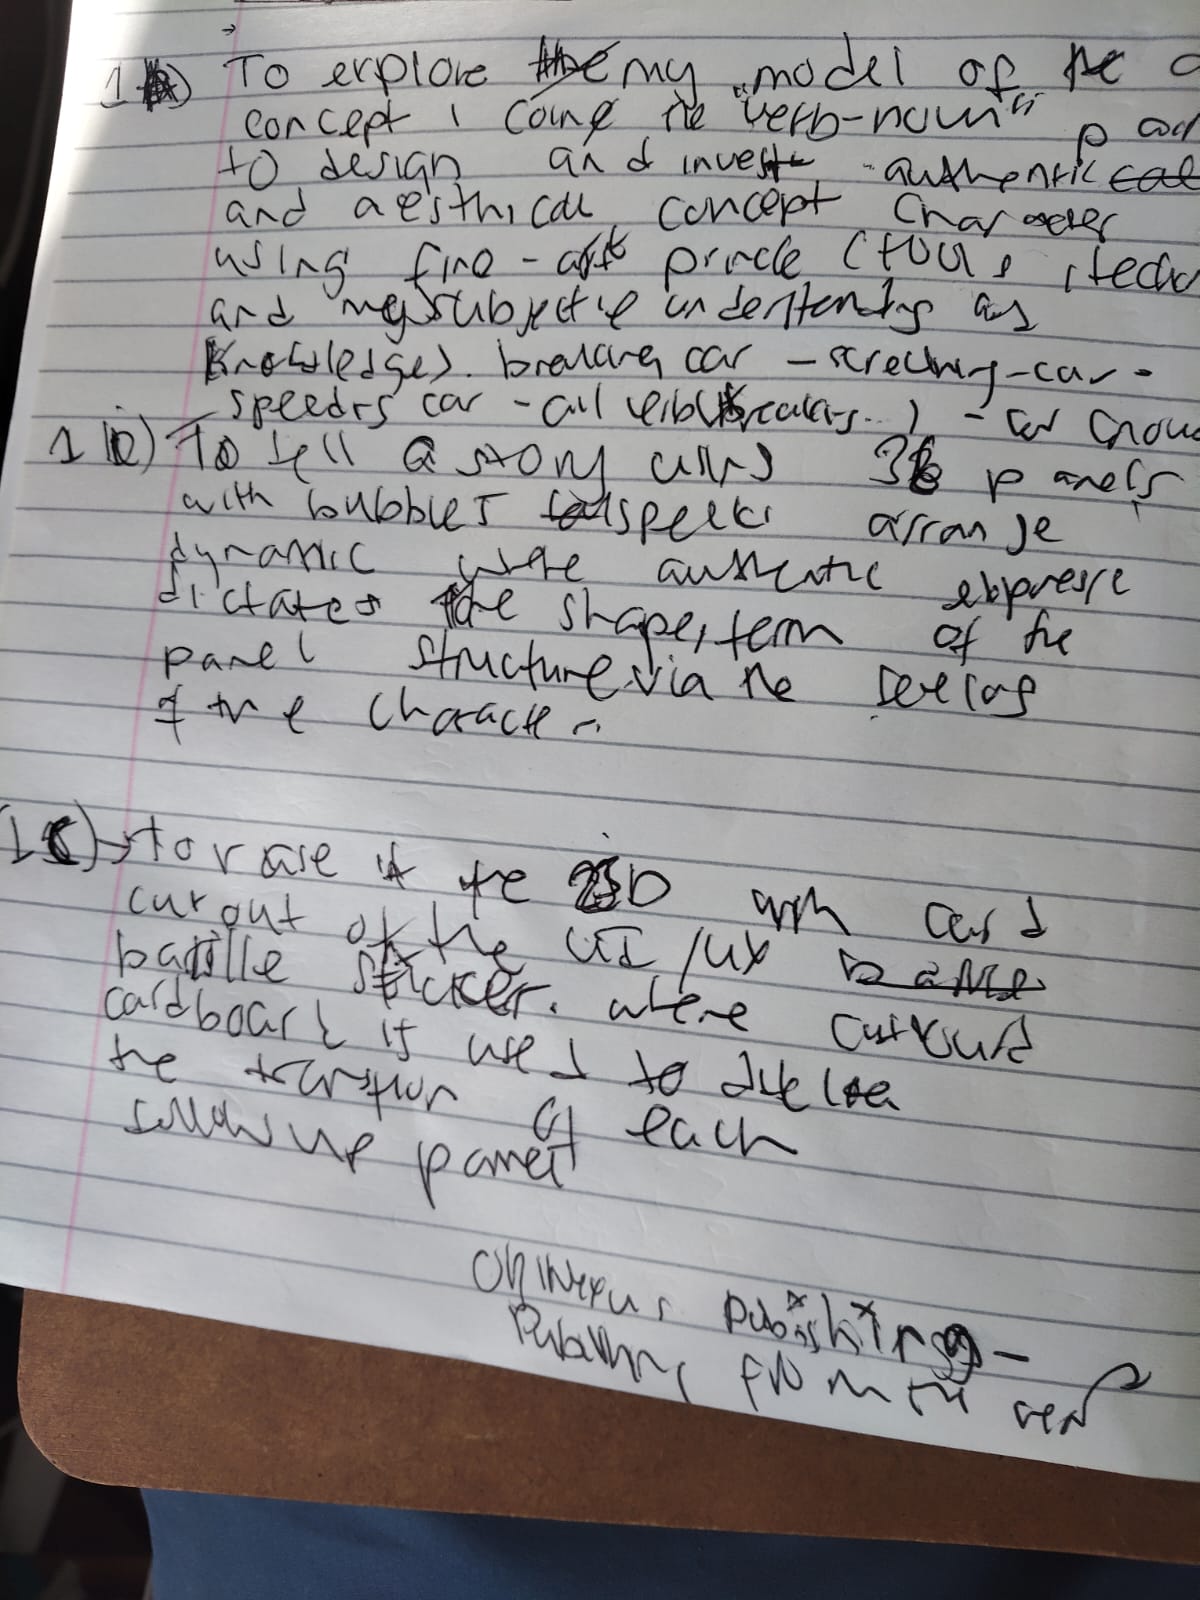 1a) To explore my model of the
concept I coine the "verb-noun"
to design and invest authentic
and aesthical concept character
using fine-art princle (tool, techn
and my subjective understanding as
knowledge). breaking car - screching-car-
speedrs car - all
1b) To tell a story using 36 panels
with bubbles speeks arrange
dynamic where authentic expresse
dictates the shape, term of the
panel structure via the
of the character.
1c) → to rase it the 2.5D with card
cut out of the UI/UX
battle sticker. where cutout
cardboard is used to
the transtion of each
follow up panel
Obinexus Pubishing -
Publishing from the